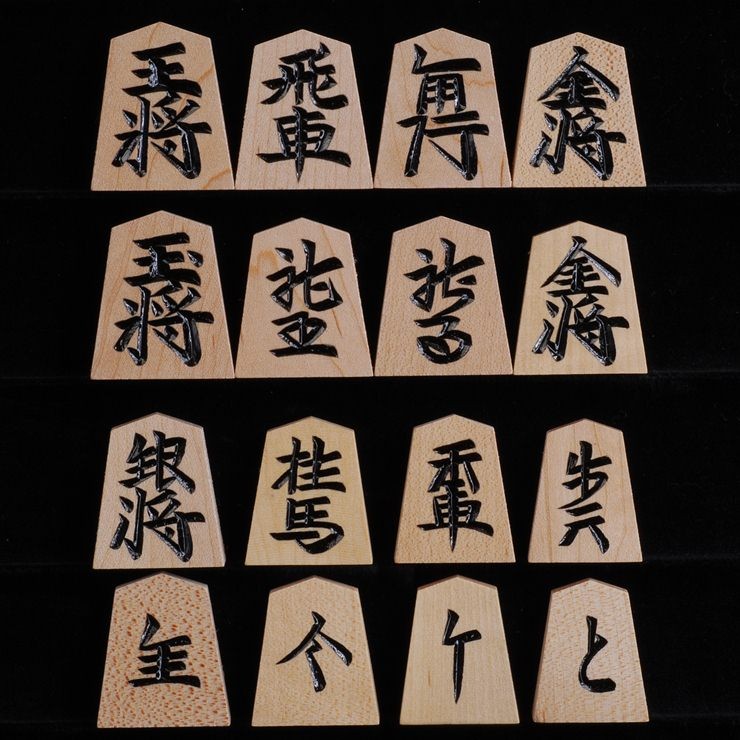 王将 飛車 角行 金将
玉将 龍王 龍馬 金将
銀将 桂馬 香車 歩兵
全 今 个 と